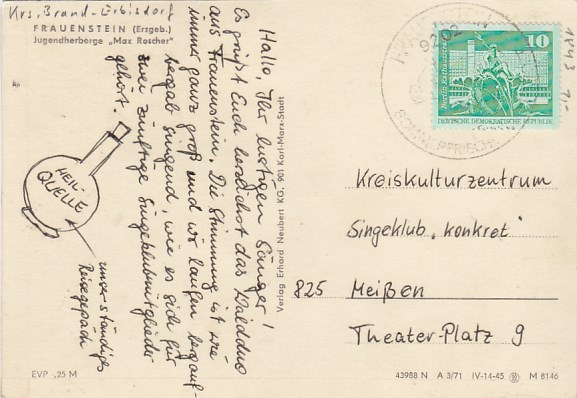 Krs. Brand-Erbisdorf
FRAUENSTEIN (Erzgeb.)
Jugendherberge „Max Roscher"
Hallo, Ihr lustigen Sänger!
Es grüßt Euch herzlichst das Waldduo
aus Frauenstein. Die Stimmung ist wie
immer ganz groß und wir laufen bergauf-
bergab singend, wie es sich für
zwei zünftige Singeklubmitglieder
gehört.
HEIL-
QUELLE
unser ständiges
Reisegepäck
EVP ,25 M
Verlag Erhard Neubert KG, 901 Karl-Marx-Stadt
9202
SOMMERFRISCHE
10
Berlin, Rathausstraße
DEUTSCHE DEMOKRATISCHE REPUBLIK
Kreiskulturzentrum
Singeklub „konkret"
825 Meißen
Theater-Platz 9
43988 N A 3/71 IV-14-45 M 8146